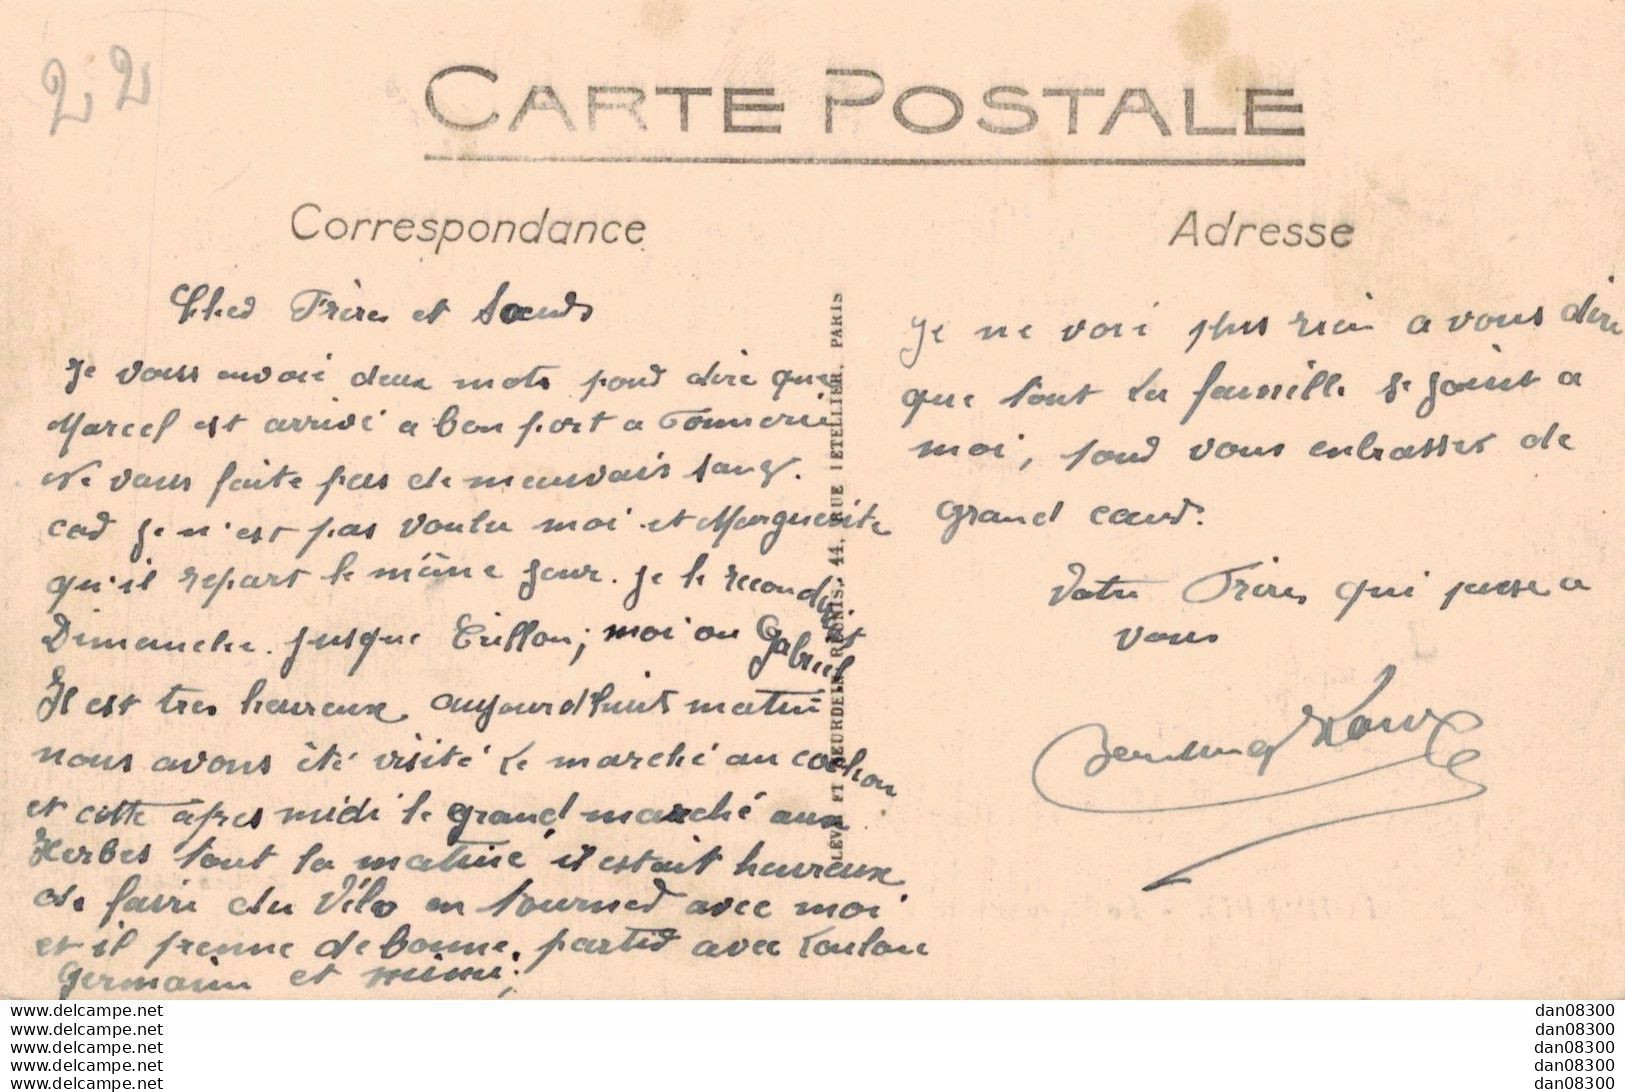 22
CARTE POSTALE
Correspondance
Adresse
Cher Frère et Sœur
Je vous envoie deux mots pour dire que
Marcel est arrivé a bon port a
Ne vous faite pas de mauvais sang.
car je n'est pas voulu moi et Marguerite
qu'il repart le même jour. je le
Dimanche. jusque moi ou Gabriel
Il est tres heureux aujourd'huit matin
nous avons été visité le marché au cochon
et cette apres midi le grand marché aux
Herbes tout la matiné il était heureux
de faire du Vélo en tourner avec moi
et il prenne de bonne. partir avec Loulou
Germain et mimi;
LEVY ET NEURDEIN REUNIS, 44, RUE LETELLIER, PARIS
Je ne voi plus rien a vous dire
que tout la famille se joint a
moi, pour vous enbrasser de
grand cœur.
Votre Frère qui pense a
vous
dan08300 delcampe.net
dan08300 delcampe.net
dan08300 delcampe.net
dan08300 delcampe.net
dan08300 delcampe.net